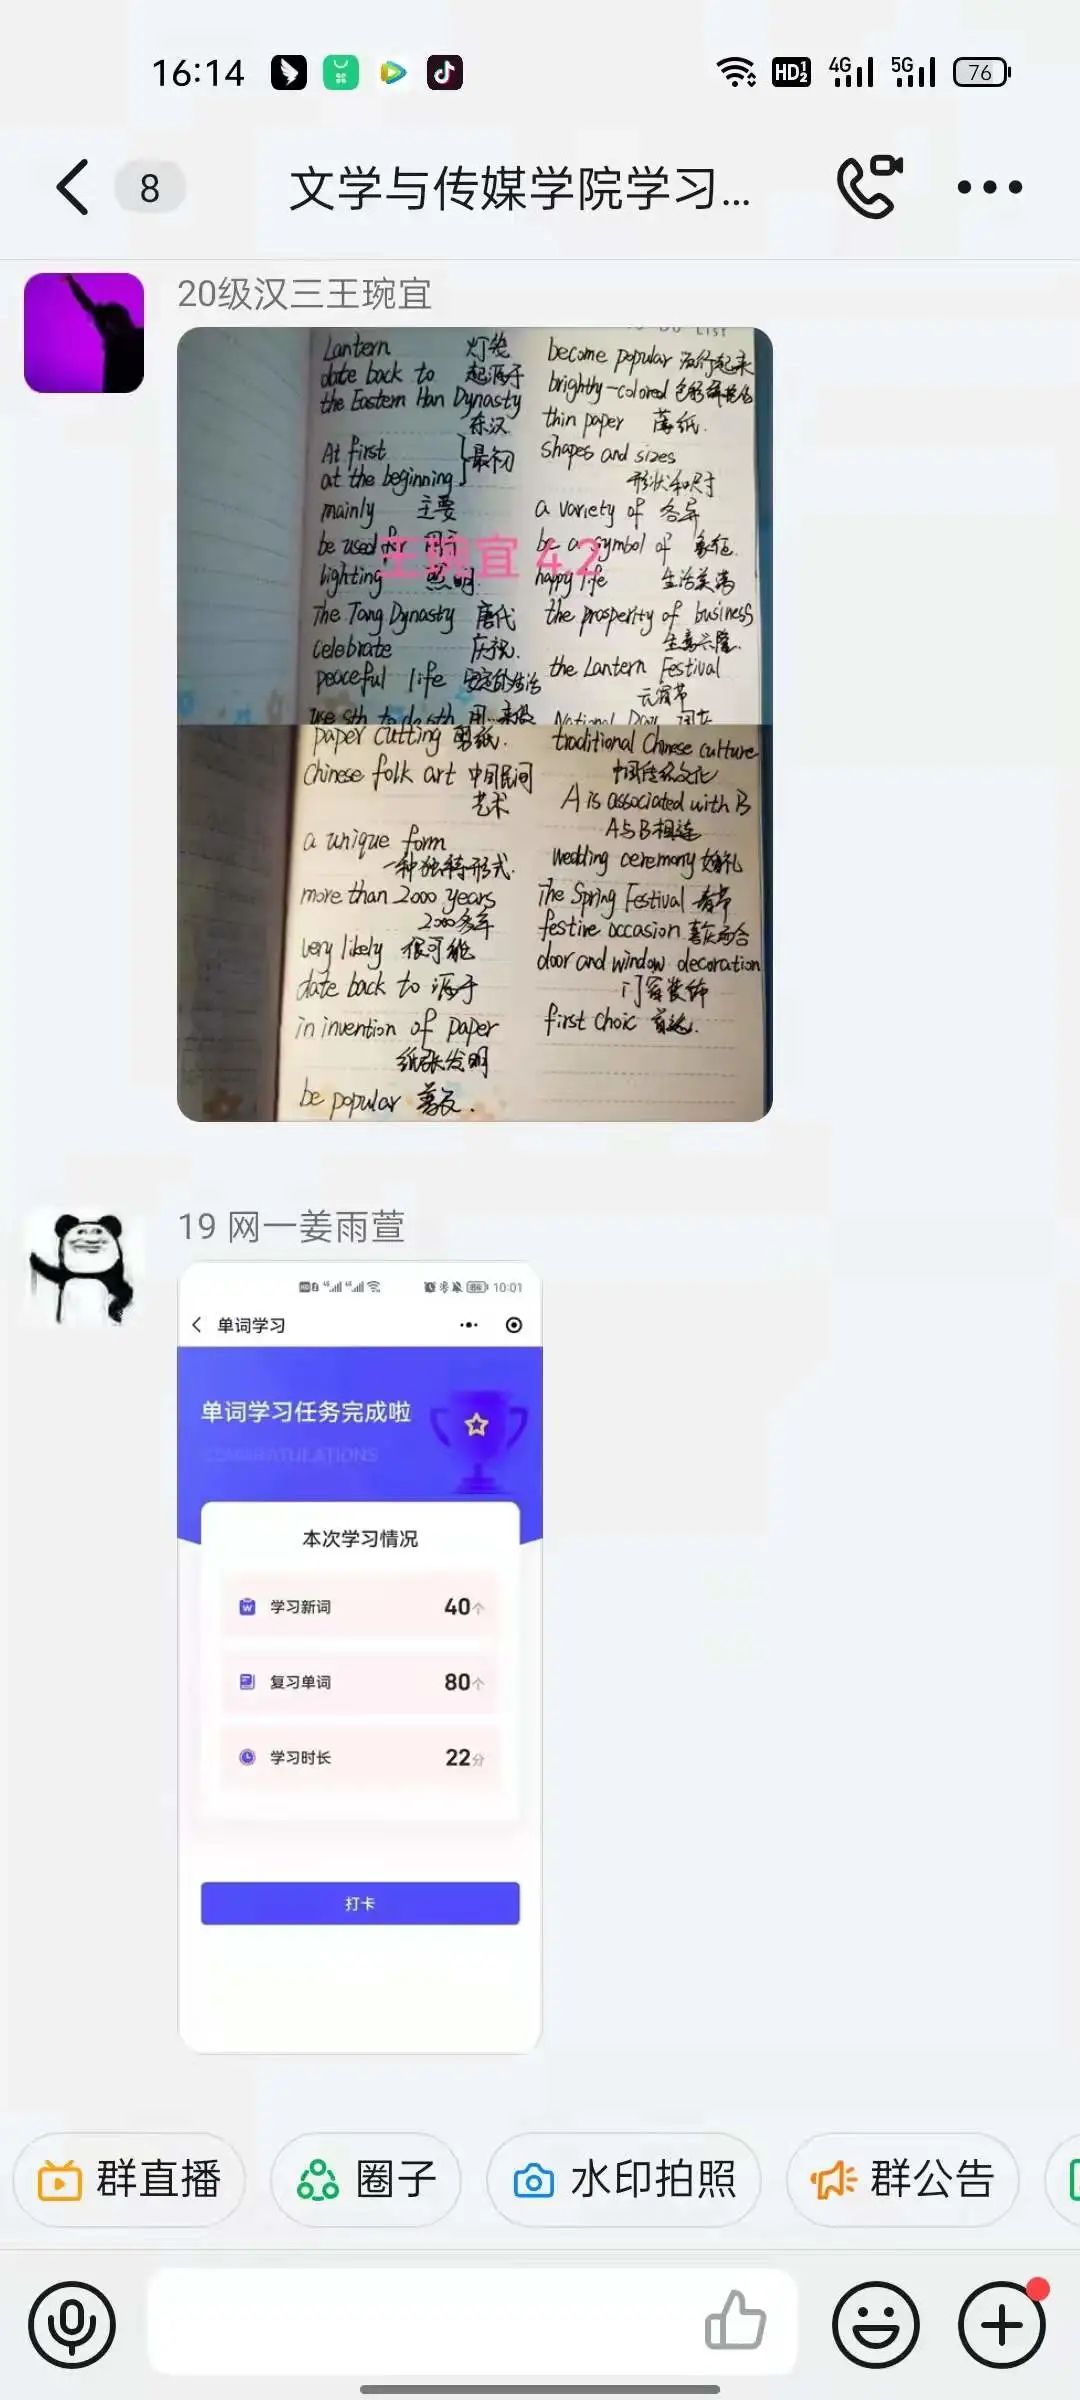 16:14
HD 1 2
4G
5G
76
8
文学与传媒学院学习...
20级汉三王琬宜
Lantern 灯笼
date back to 起源于
the Eastern Han Dynasty
东汉
At first
at the beginning
最初
mainly 主要
be used for 用于
lighting 照明
The Tang Dynasty 唐代
celebrate 庆祝.
peaceful life 安定的生活
use sth to do sth 用...来做
become popular 流行起来
brightly-colored 色彩
thin paper 薄纸.
shapes and sizes
形状和尺寸
a variety of 各异
be a symbol of 象征.
happy life 生活美满
the prosperity of business
生意兴隆.
the Lantern Festival
元宵节
National Day 国庆
王琬宜 4.2
paper cutting 剪纸.
Chinese folk art 中国民间
艺术
a unique form
一种独特形式.
more than 2000 years
2000多年
very likely 很可能
date back to 源于
in invention of paper
纸张发明
be popular 普及.
traditional Chinese culture
中国传统文化
A is associated with B
A与B相连
wedding ceremony 婚礼
The Spring Festival 春节
festive occasion 喜庆场合
door and window decoration
门窗装饰
first choic 首选.
19 网一姜雨萱
10:01
单词学习
单词学习任务完成啦
CONGRATULATIONS
本次学习情况
学习新词 40个
复习单词 80个
学习时长 22分
打卡
群直播
圈子
水印拍照
群公告